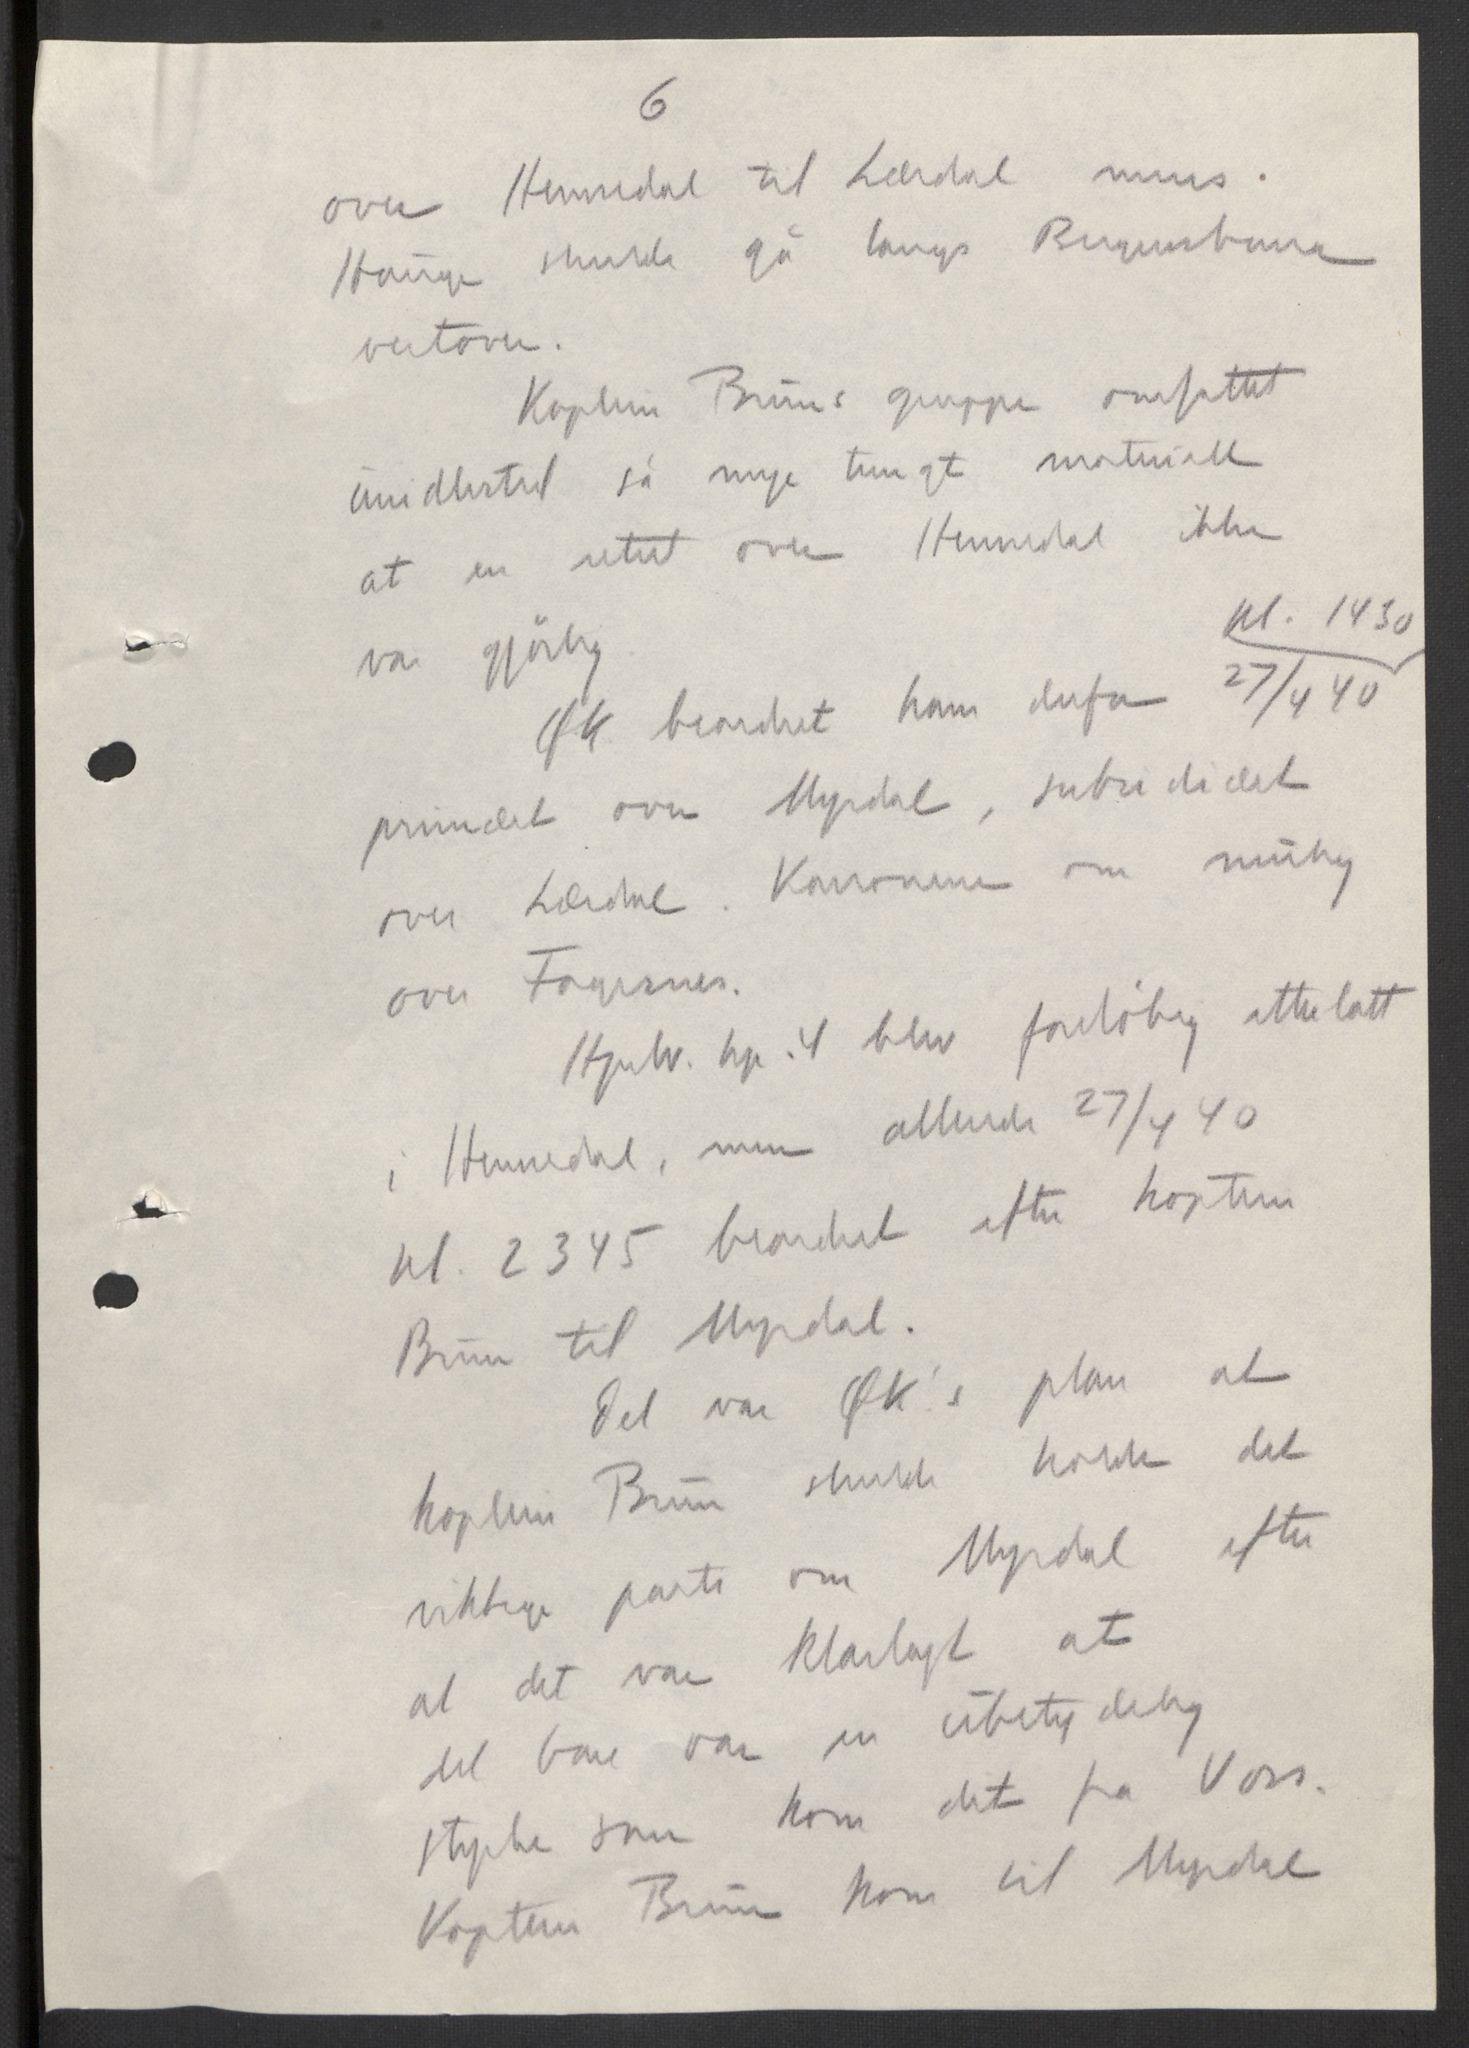 6
over Hemsedal til Lærdal mens.
Hauge skulde gå langs Bergensbanen
vestover.
Kaptein Bruns gruppe omfattet
imidlertid så mye tungt materiell
at en retret over Hemsedal ikke
var gjørlig.
kl. 1430
ØK beordret ham derfor 27/4 40
primært over Myrdal, subsidiært
over Lærdal. Kanonene om mulig
over Fagernes.
Hjulr. kp. 4 blev foreløbig etterlatt
i Hemsedal, men allerede 27/4 40
kl. 2345 beordret efter kaptein
Brun til Myrdal.
Det var ØK's plan at
kaptein Brun skulde holde det
viktige parti om Myrdal efter
at det var klarlagt at
det bare var en ubetydelig
styrke som kom dit fra Voss.
Kaptein Brun kom til Myrdal